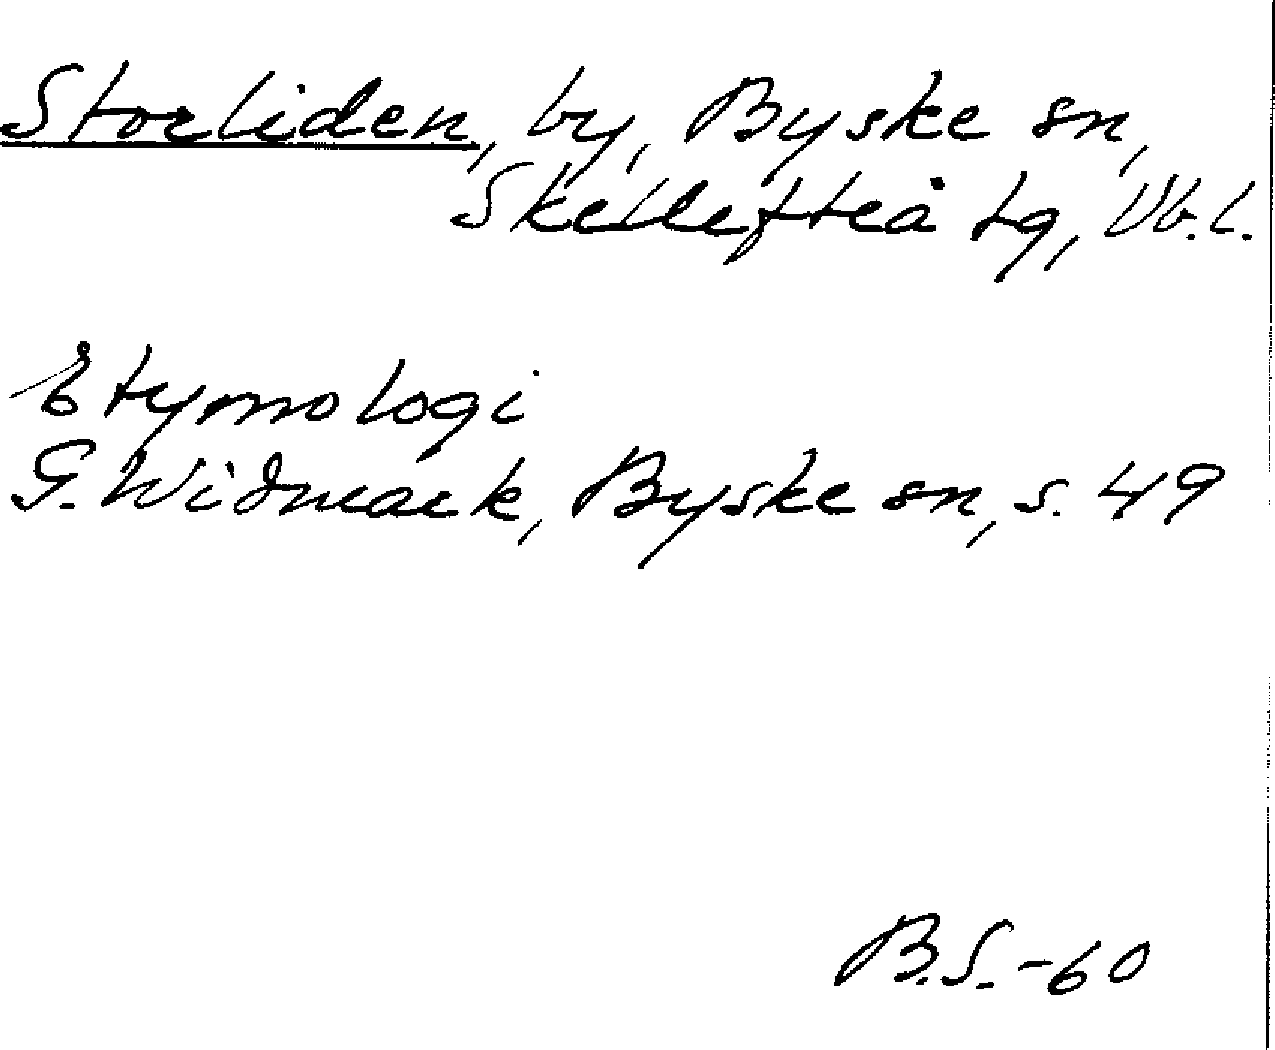 Storliden, by, Byske sn,
Skellefteå tg, Vb.l.
Etymologi
G. Widmark, Byske sn, s. 49
B.S.-60